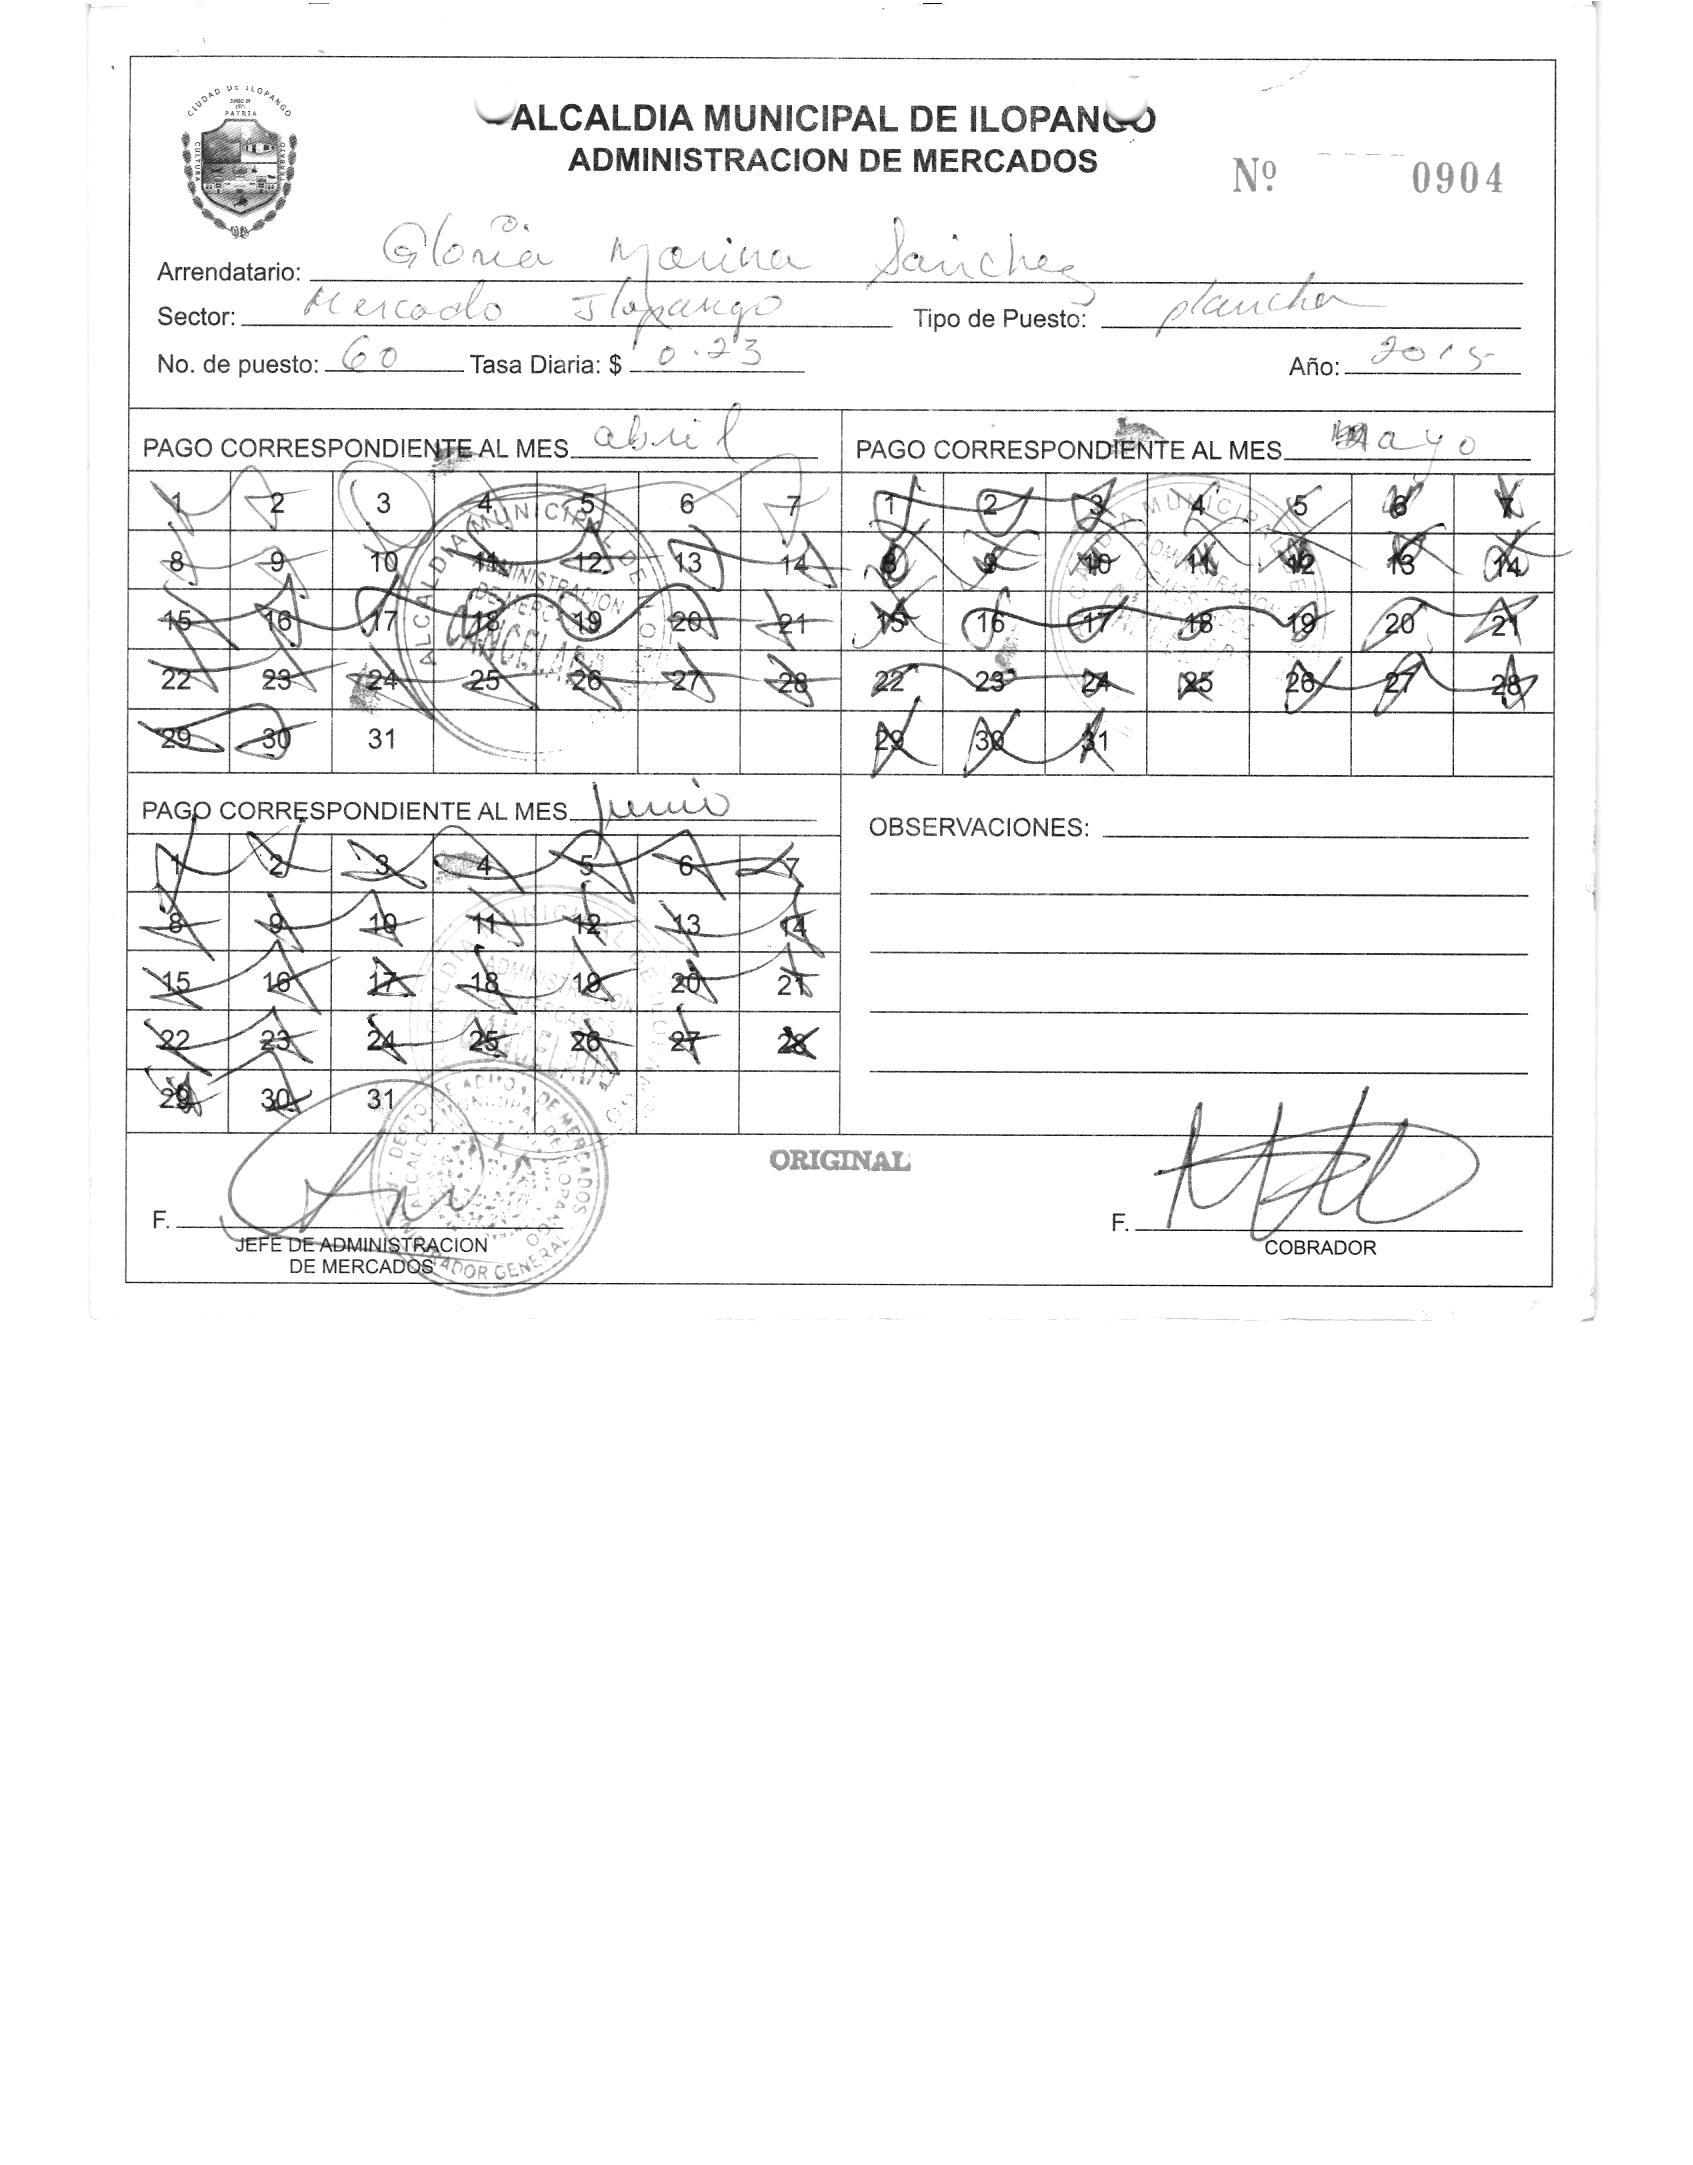 CIUDAD DE ILOPANGO
JUNIO 29
1971
PATRIA
CULTURA
ALCALDIA MUNICIPAL DE ILOPANGO
ADMINISTRACION DE MERCADOS
Nº 0904
Arrendatario: Gloria Marina Sanchez
Sector: Mercado Ilopango Tipo de Puesto: plancha
No. de puesto: 60 Tasa Diaria: $ 0.23 Año: 2015
PAGO CORRESPONDIENTE AL MES abril
1 2 3 4 5 6 7
8 9 10 11 12 13 14
15 16 17 18 19 20 21
22 23 24 25 26 27 28
29 30 31
ALCALDIA MUNICIPAL DE
ADMINISTRACION
DE MERCADOS
PAGO CORRESPONDIENTE AL MES mayo
1 2 3 4 5 6 7
8 9 10 11 12 13 14
15 16 17 18 19 20 21
22 23 24 25 26 27 28
29 30 31
PAGO CORRESPONDIENTE AL MES junio
1 2 3 4 5 6 7
8 9 10 11 12 13 14
15 16 17 18 19 20 21
22 23 24 25 26 27 28
29 30 31
OBSERVACIONES:
ORIGINAL
F.
JEFE DE ADMINISTRACION
DE MERCADOS
DEPTO DE ADMON. DE MERCADOS
ALCALDIA MUNICIPAL DE ILOPANGO
ADMINISTRADOR GENERAL
F.
COBRADOR